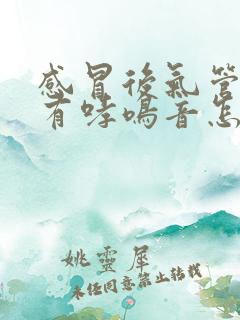 感冒後氣管
有哮鳴音怎
姚靈犀
未经同意禁止转载